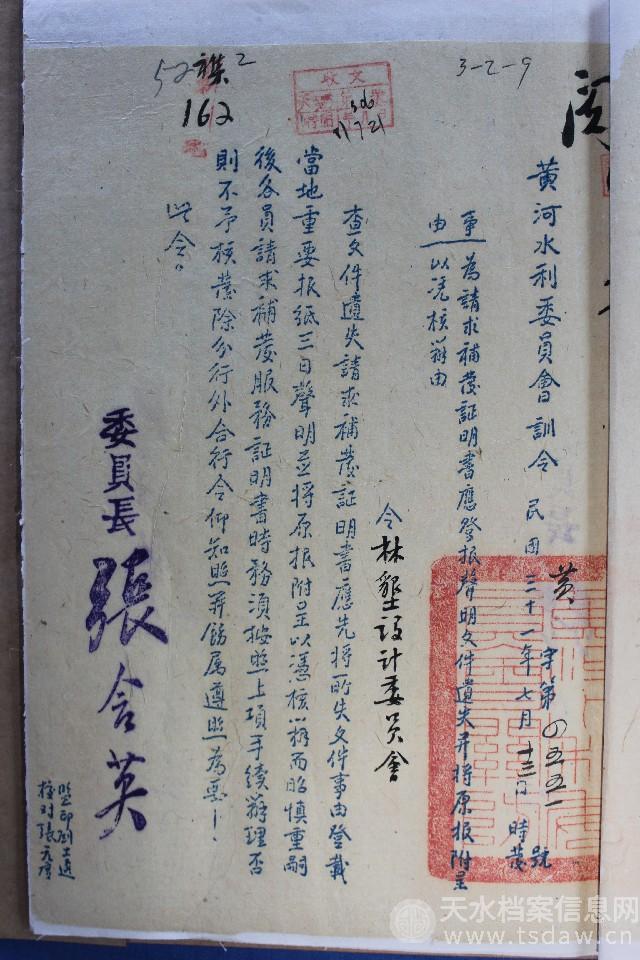 黄河水利委員會訓令
黃字第四五五一號
民國三十一年七月十三日 時發
事由 為請求補發証明書應登报聲明文件遺失并將原报附呈
以凭核辦由
令林墾設计委员會
查文件遺失請求補發証明書應先將所失文件事由登載
當地重要报紙三日聲明並將原报附呈以憑核辦而昭慎重嗣
後各員請求補發服務証明書時務須按照上項手續辦理否
則不予核發除分行外合行令仰知照并飭属遵照為要！
此令。
委員長 張含英
監印
校对張
52 2
162
3-2-9
收文
天水档案信息网
www.tsdaw.cn